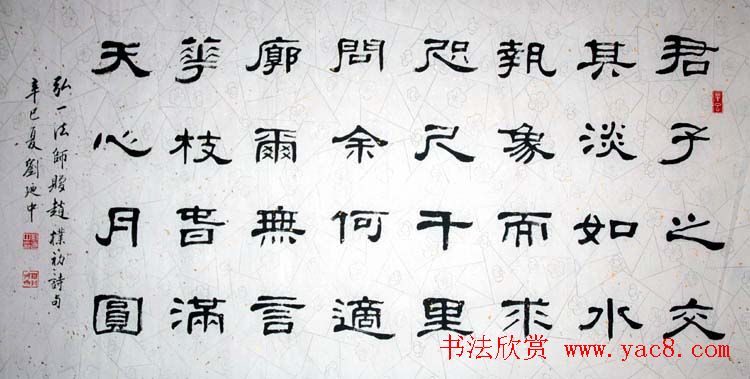 君子之交
其淡如水
執象而求
咫尺千里
問余何適
廓爾無言
華枝春滿
天心月圓
弘一法師贈趙樸初詩句
辛巳夏劉廸中
书法欣赏 www.yac8.com